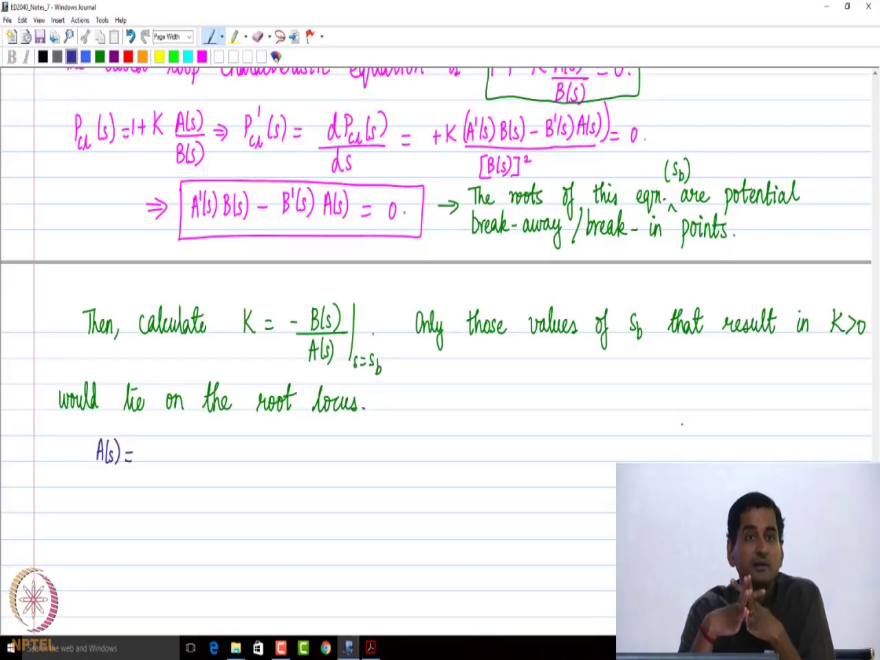 ED2040_Notes_7 - Windows Journal
File Edit View Insert Actions Tools Help
Page Width
B I
equation is 1 + K A(s)/B(s) = 0.
P_CL(s) = 1 + K A(s)/B(s) ⇒ P_CL'(s) = dP_CL(s)/ds = +K (A'(s) B(s) - B'(s) A(s))/[B(s)]² = 0.
⇒ A'(s) B(s) - B'(s) A(s) = 0. → The roots of this eqn. (s_b) are potential
break-away / break-in points.
Then, calculate K = - B(s)/A(s) |s=s_b. Only those values of s_b that result in K>0
would lie on the root locus.
A(s) =
NPTEL
Search the web and Windows